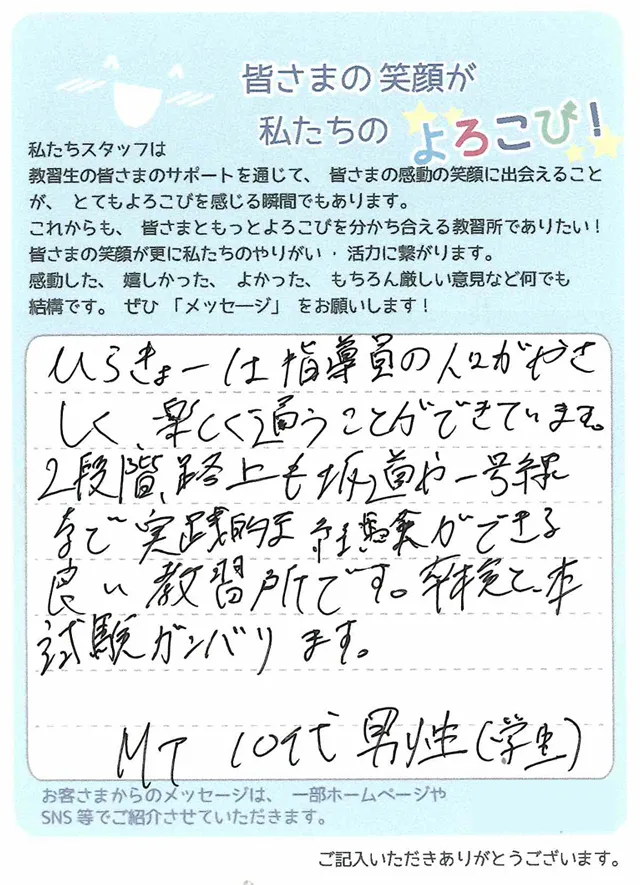 皆さまの笑顔が
私たちの よろこび!
私たちスタッフは
教習生の皆さまのサポートを通じて、 皆さまの感動の笑顔に出会えること
が、 とてもよろこびを感じる瞬間でもあります。
これからも、 皆さまともっとよろこびを分かち合える教習所でありたい!
皆さまの笑顔が更に私たちのやりがい・活力に繋がります。
感動した、 嬉しかった、 よかった、 もちろん厳しい意見など何でも
結構です。 ぜひ 「メッセージ」 をお願いします!
ひらきょーは指導員の人がやさ
しく、楽しく通うことができています。
2段階、路上も坂道や一号線
まで実践的な経験ができる
良い教習所です。卒検と、本
試験ガンバリます。
MT 10代 男性(学生)
お客さまからのメッセージは、 一部ホームページや
SNS等でご紹介させていただきます。
ご記入いただきありがとうございます。